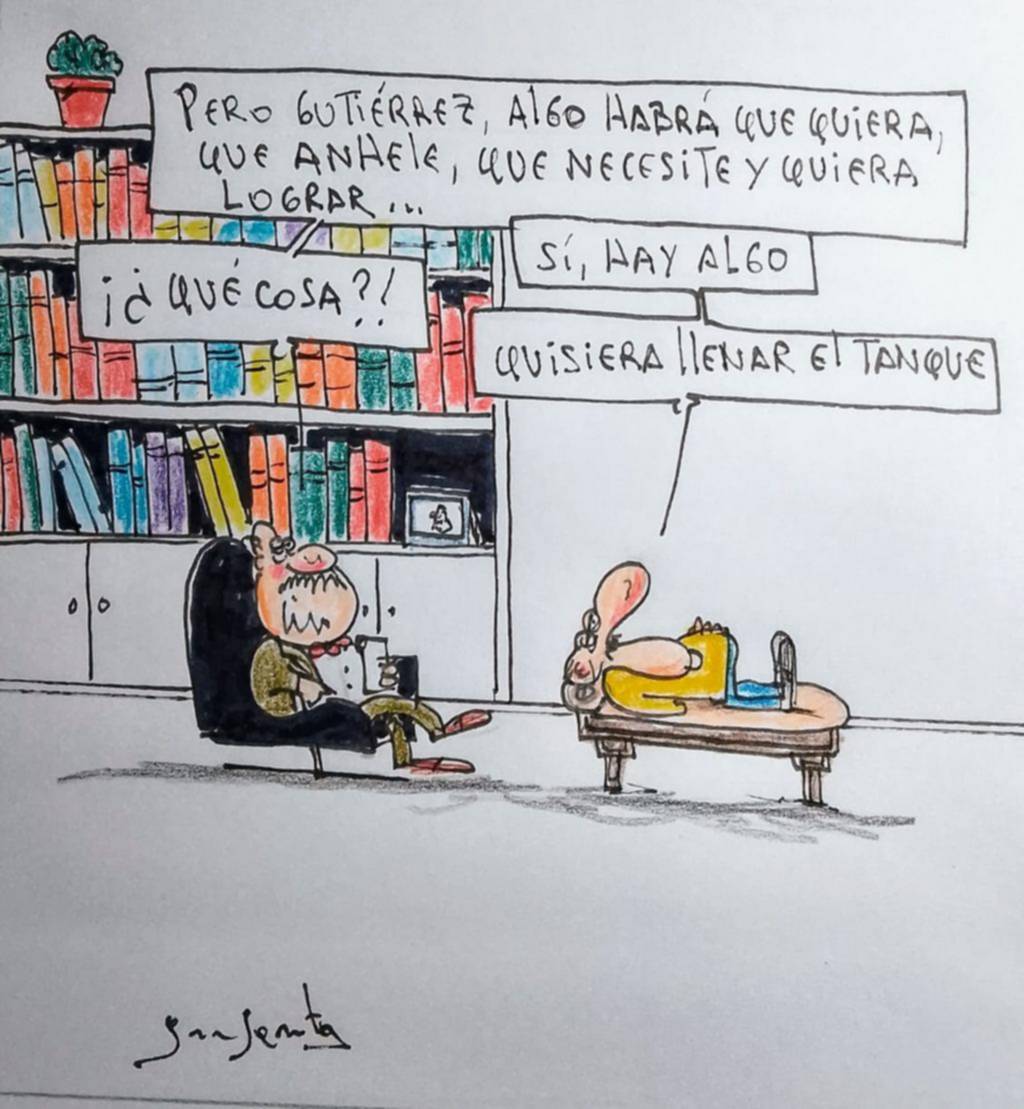 PERO GUTIÉRREZ, AlGO HABRÁ QUE QUIERA,
QUE ANHElE, QUE NECESITE Y QUIERA
LOGRAR...
SÍ, HAY ALGO
¡¿QUÉ COSA?!
QUISIERA llENAR El TANQUE